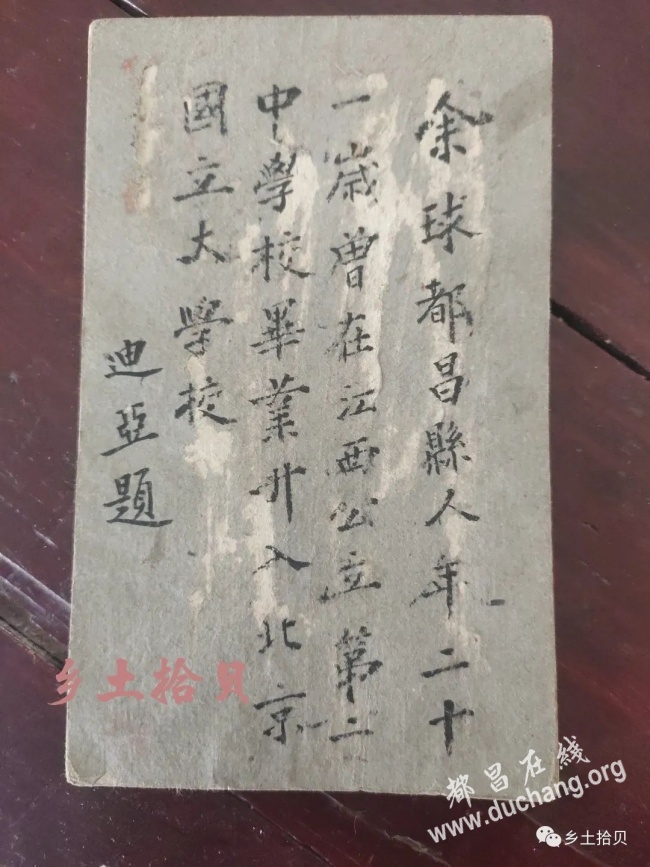 余球都昌縣人年二十
一歲曾在江西公立第二
中學校畢業升入北京
國立大學校
迪亞題
乡土拾贝
都昌在线
www.duchang.org
乡土拾贝